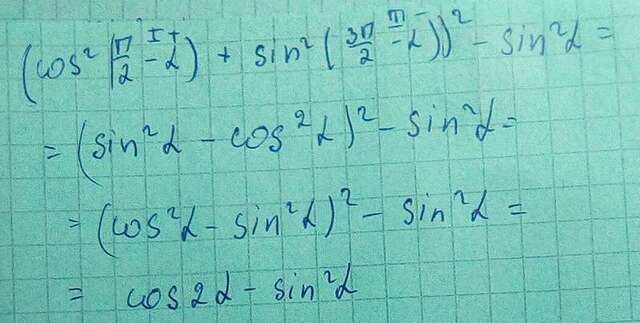 (cos² (π/2 - α) + sin² (3π/2 - α))² - sin²α =
= (sin²α - cos²α)² - sin²α =
= (cos²α - sin²α)² - sin²α =
= cos2α - sin²α